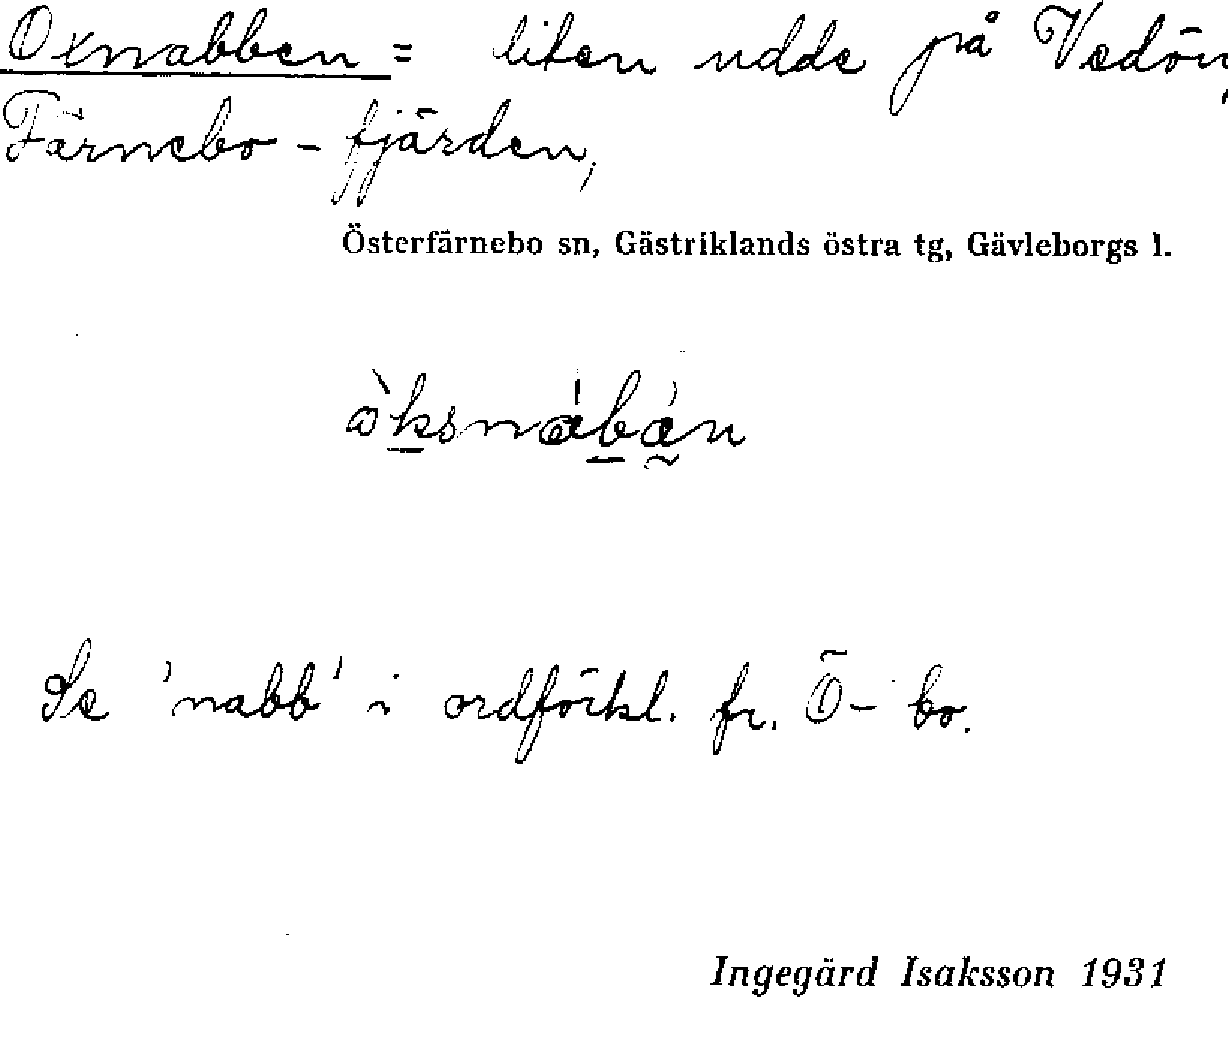 Oxnabben = liten udde på Vedön,
Färnebo-fjärden,
Österfärnebo sn, Gästriklands östra tg, Gävleborgs l.
Se 'nabb' i ordförkl. fr. Ö-bo.
Ingegärd Isaksson 1931